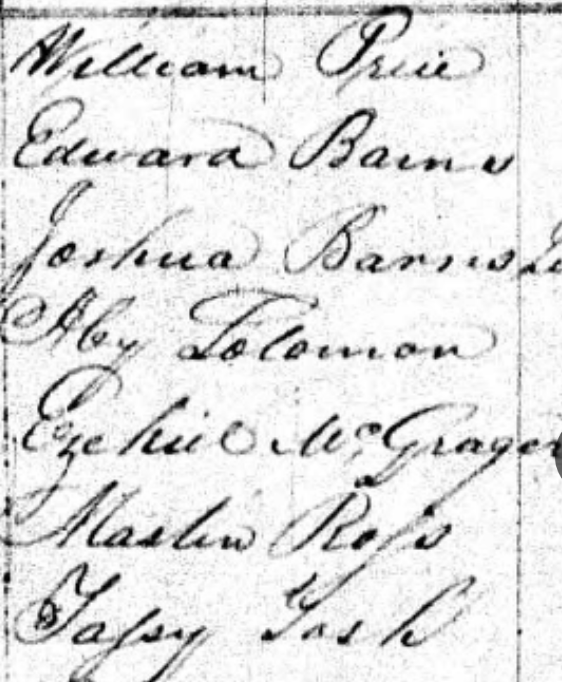 William Price
Edward Barns
Joshua Barns
Aby Solomon
Ezekiel McGrager
Maslin Ross